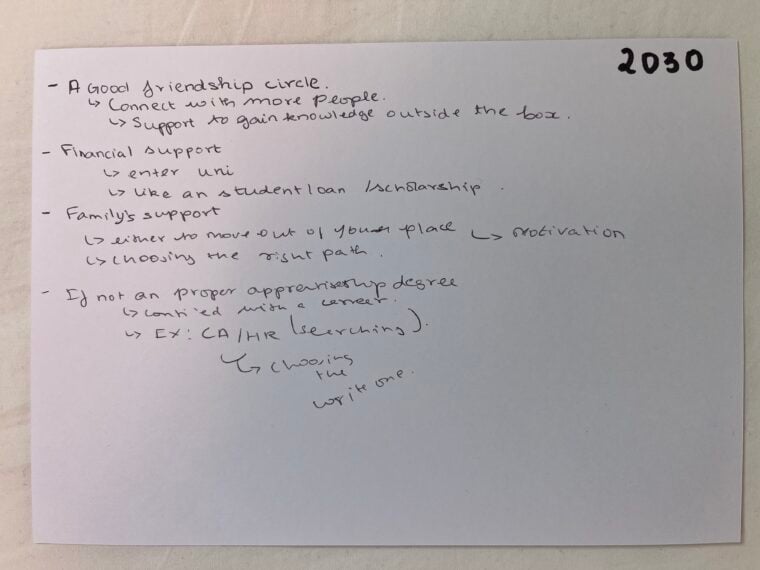 2030
- A Good friendship circle.
↳ Connect with more people.
↳ Support to gain knowledge outside the box.
- Financial support
↳ enter uni
↳ like an student loan / scholarship.
- Family's support
↳ either to move out of your place ↳ motivation
↳ choosing the right path.
- If not an proper apprentiship degree
↳ with a career.
↳ EX: CA/HR (searching).
↳ choosing
the
write one.